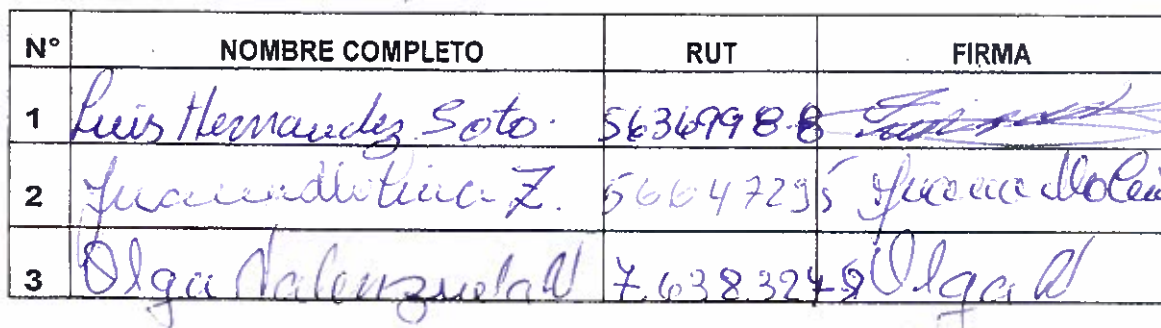 N° NOMBRE COMPLETO RUT FIRMA
1 Luis Hernandez Soto. 56369988
2 Juana Molina Z. 56647295 Juana Molin
3 Olga Valenzuela V 7.638.324-9 Olga V